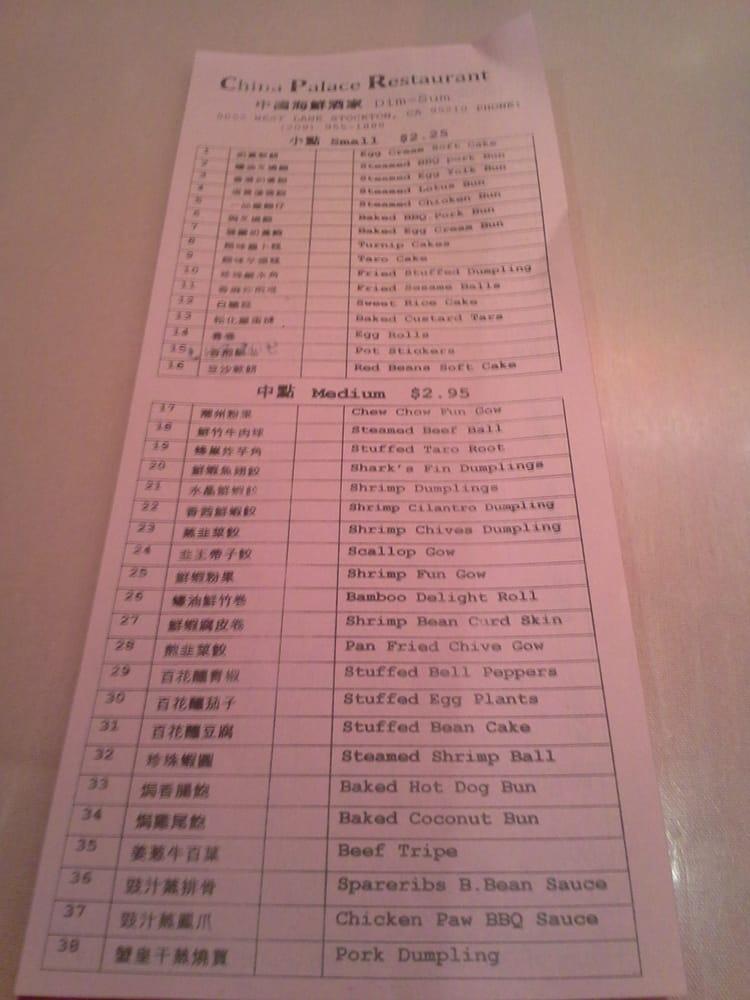 China Palace Restaurant
中國海鮮酒家 Dim-Sum
WEST LANE STOCKTON, CA 95210 PHONE:
(209) 955-1888
小點 Small $2.25
1 Egg Cream Soft Cake
2 Steamed BBQ Pork Bun
3 Steamed Egg Yolk Bun
4 Steamed Lotus Bun
5 Steamed Chicken Bun
6 Baked BBQ Pork Bun
7 Baked Egg Cream Bun
8 Turnip Cakes
9 Taro Cake
10 Fried Stuffed Dumpling
11 Fried Sesame Balls
12 白糖糕 Sweet Rice Cake
13 Baked Custard Tars
14 春卷 Egg Rolls
15 Pot Stickers
16 豆沙軟餅 Red Beans Soft Cake
中點 Medium $2.95
17 潮州粉果 Chew Chow Fun Gow
18 鮮竹牛肉球 Steamed Beef Ball
19 蜂巢炸芋角 Stuffed Taro Root
20 鮮蝦魚翅餃 Shark's Fin Dumplings
21 水晶鮮蝦餃 Shrimp Dumplings
22 香茜鮮蝦餃 Shrimp Cilantro Dumpling
23 蒸韭菜餃 Shrimp Chives Dumpling
24 韭王帶子餃 Scallop Gow
25 鮮蝦粉果 Shrimp Fun Gow
26 蠔油鮮竹卷 Bamboo Delight Roll
27 鮮蝦腐皮卷 Shrimp Bean Curd Skin
28 煎韭菜餃 Pan Fried Chive Gow
29 百花釀青椒 Stuffed Bell Peppers
30 百花釀茄子 Stuffed Egg Plants
31 百花釀豆腐 Stuffed Bean Cake
32 珍珠蝦圓 Steamed Shrimp Ball
33 焗香腸飽 Baked Hot Dog Bun
34 焗雞尾飽 Baked Coconut Bun
35 姜葱牛百葉 Beef Tripe
36 豉汁蒸排骨 Spareribs B.Bean Sauce
37 豉汁蒸鳳爪 Chicken Paw BBQ Sauce
38 蟹皇干蒸燒賣 Pork Dumpling